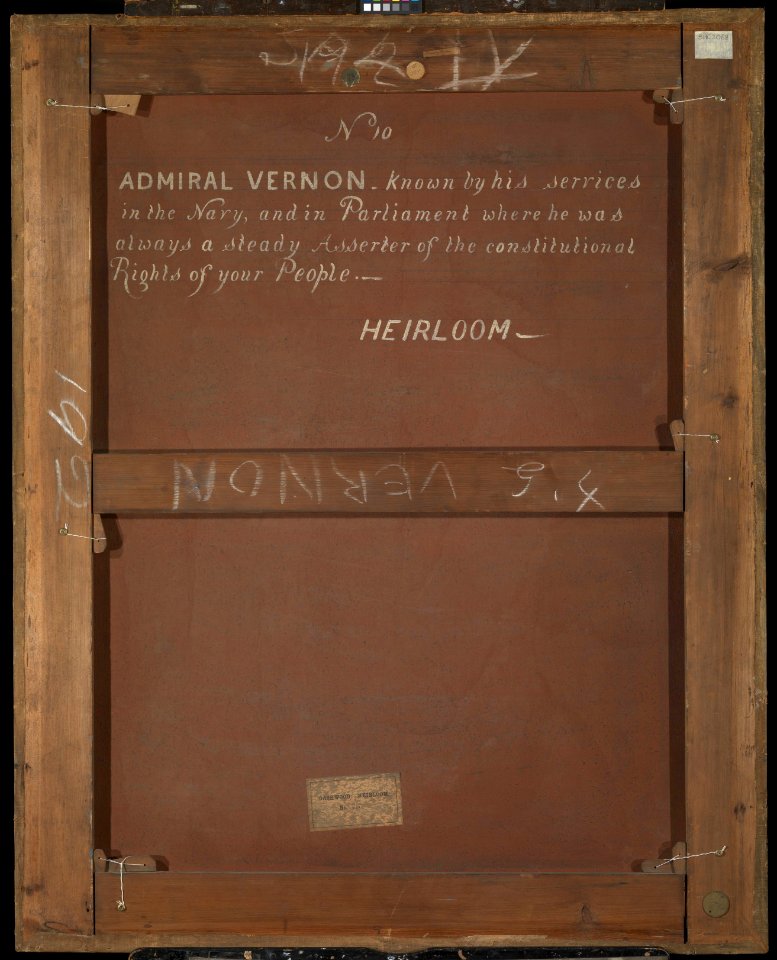 No 10
ADMIRAL VERNON - Known by his services
in the Navy, and in Parliament where he was
always a steady Asserter of the constitutional
Rights of your People.—
HEIRLOOM—
192
VERNON
DASHWOOD HEIRLOOM